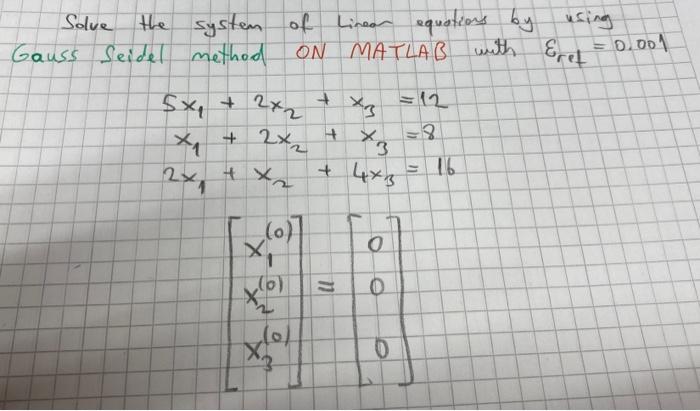 Solve the system of Linear equations by using
Gauss Seidel method ON MATLAB with εref = 0.001
5x₁ + 2x₂ + x₃ = 12
x₁ + 2x₂ + x₃ = 8
2x₁ + x₂ + 4x₃ = 16
[x₁⁽⁰⁾ x₂⁽⁰⁾ x₃⁽⁰⁾] = [0 0 0]